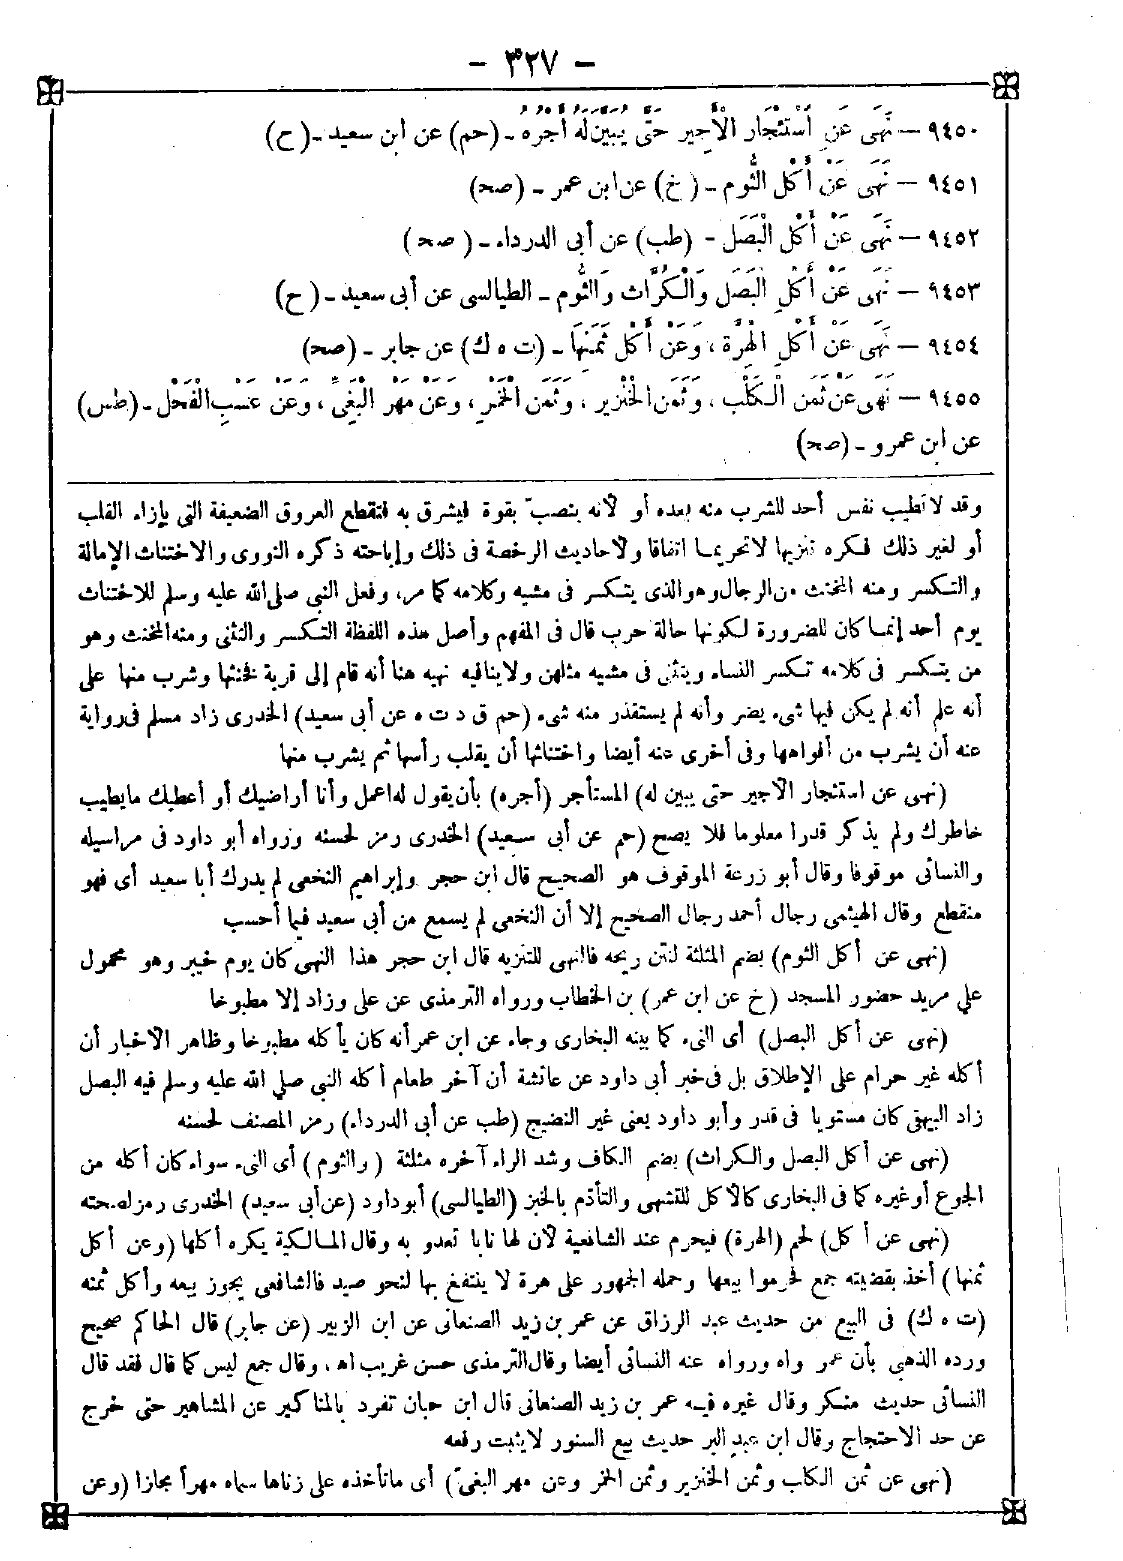 - ٣٢٧ -
٩٤٥٠ — نَهَى عَنِ اسْتِئْجَارِ الْأَجِيرِ حَتَّى يُبَيَّنَ لَهُ أَجْرُهُ - (حم) عن ابن سعيد - (ح)
٩٤٥١ — نَهَى عَنْ أَكْلِ الثُّومِ - (خ) عن ابن عمر - (صحـ)
٩٤٥٢ — نَهَى عَنْ أَكْلِ الْبَصَلِ - (طب) عن أبى الدرداء - (صحـ)
٩٤٥٣ — نَهَى عَنْ أَكْلِ الْبَصَلِ وَالْكُرَّاثِ وَالثُّومِ - الطيالسى عن أبى سعيد - (ح)
٩٤٥٤ — نَهَى عَنْ أَكْلِ الْهِرَّةِ ، وَعَنْ أَكْلِ ثَمَنِهَا - (ت ه ك) عن جابر - (صحـ)
٩٤٥٥ — نَهَى عَنْ ثَمَنِ الْكَلْبِ ، وَثَمَنِ الْخِنْزِيرِ ، وَثَمَنِ الْخَمْرِ ، وَعَنْ مَهْرِ الْبَغِيِّ ، وَعَنْ عَسْبِ الْفَحْلِ - (طس)
عن ابن عمرو - (صحـ)
وقد لا تطيب نفس أحد للشرب منه بعده أو لأنه ينصبّ بقوة فيشرق به فتقطع العروق الضعيفة التى بإزاء القلب
أو لغير ذلك فكره تنزيها لا تحريما اتفاقا ولأحاديث الرخصة فى ذلك وإباحته ذكره النووى والاختناث الإمالة
والتكسر ومنه المخنث من الرجال وهو الذى يتكسر فى مشيه وكلامه كما مر، وفعل النبى صلى الله عليه وسلم للاختناث
يوم أحد إنما كان للضرورة لكونها حالة حرب قال فى المفهم وأصل هذه اللفظة التكسر والتثنى ومنه المخنث وهو
من يتكسر فى كلامه تكسر النساء ويتثنى فى مشيه مثلهن ولا ينافيه نهيه هنا أنه قام إلى قربة فخنثها وشرب منها على
أنه علم أنه لم يكن فيها شىء يضر وأنه لم يستقذر منه شىء (حم ق د ت ه عن أبى سعيد) الخدرى زاد مسلم فى رواية
عنه أن يشرب من أفواهها وفى أخرى عنه أيضا واختناثها أن يقلب رأسها ثم يشرب منها
(نهى عن استئجار الأجير حتى يبين له) المستأجر (أجره) بأن يقول له اعمل وأنا أراضيك أو أعطيك ما يطيب
خاطرك ولم يذكر قدرا معلوما فلا يصح (حم عن أبى سعيد) الخدرى رمز لحسنه وزواه أبو داود فى مراسيله
والنسائى موقوفا وقال أبو زرعة الموقوف هو الصحيح قال ابن حجر وإبراهيم النخعى لم يدرك أبا سعيد أى فهو
منقطع وقال الهيثمى رجال أحمد رجال الصحيح إلا أن النخعى لم يسمع من أبى سعيد فيما أحسب
(نهى عن أكل الثوم) بضم المثلثة لنتن ريحه فالنهى للتنزيه قال ابن حجر هذا النهى كان يوم خيبر وهو محمول
على مريد حضور المسجد (خ عن ابن عمر) بن الخطاب ورواه الترمذى عن على وزاد إلا مطبوخا
(نهى عن أكل البصل) أى النىء كما بينه البخارى وجاء عن ابن عمر أنه كان يأكله مطبوخا وظاهر الأخبار أن
أكله غير حرام على الإطلاق بل فى خبر أبى داود عن عائشة أن آخر طعام أكله النبى صلى الله عليه وسلم فيه البصل
زاد البيهقى كان مستويا فى قدر وأبو داود يعنى غير النضيج (طب عن أبى الدرداء) رمز المصنف لحسنه
(نهى عن أكل البصل والكراث) بضم الكاف وشد الراء آخره مثلثة (والثوم) أى النىء سواء كان أكله من
الجوع أو غيره كما فى البخارى كالأكل للتشهى والتأدم بالخبز (الطيالسى) أبو داود (عن أبى سعيد) الخدرى رمز لصحته
(نهى عن أكل) لحم (الهرة) فيحرم عند الشافعية لأن لها نابا تعدو به وقال المالكية يكره أكلها (وعن أكل
ثمنها) أخذ بقضيته جمع فحرموا بيعها وحمله الجمهور على هرة لا ينتفع بها لنحو صيد فالشافعى يجوز بيعه وأكل ثمنه
(ت ه ك) فى البيع من حديث عبد الرزاق عن عمر بن زيد الصنعانى عن ابن الزبير (عن جابر) قال الحاكم صحيح
ورده الذهبى بأن عمر واه ورواه عنه النسائى أيضا وقال الترمذى حسن غريب اه ، وقال جمع ليس كما قال فقد قال
النسائى حديث منكر وقال غيره فيه عمر بن زيد الصنعانى قال ابن حبان تفرد بالمناكير عن المشاهير حتى خرج
عن حد الاحتجاج وقال ابن عبد البر حديث بيع السنور لا يثبت رفعه
(نهى عن ثمن الكلب وثمن الخنزير وثمن الخمر وعن مهر البغىّ) أى ما تأخذه على زناها سماه مهراً مجازا (وعن